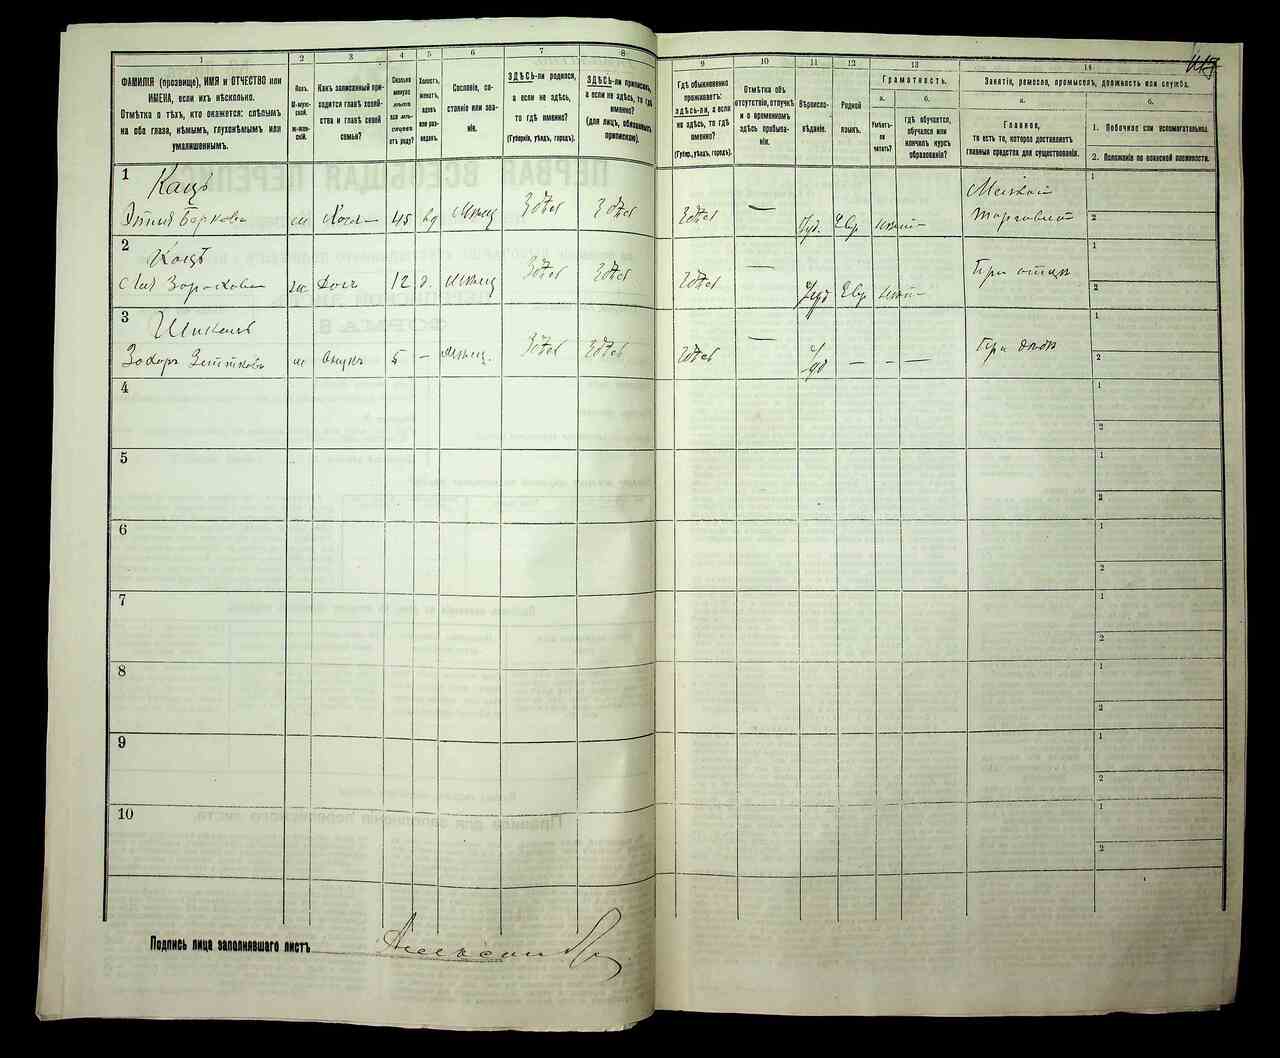 1
2
3
4
5
6
7
8
ФАМИЛІЯ (прозвище), ИМЯ и ОТЧЕСТВО или
ИМЕНА, если ихъ нѣсколько.
Отмѣтка о тѣхъ, кто окажется: слѣпымъ
на оба глаза, нѣмымъ, глухонѣмымъ или
умалишеннымъ.
Полъ.
М-мужской.
Ж-женскій.
Какъ записанный приходится главѣ хозяйства и главѣ своей семьи?
Сколько минуло лѣтъ или мѣсяцевъ отъ роду?
Холостъ, женатъ, вдовъ или разведенъ.
Сословіе, состояніе или званіе.
ЗДѢСЬ-ли родился, а если не здѣсь, то гдѣ именно?
(Губернія, уѣздъ, городъ).
ЗДѢСЬ-ли приписанъ, а если не здѣсь, то гдѣ именно?
(для лицъ, обязанныхъ припискою).
9
10
11
12
13
14
Гдѣ обыкновенно проживаетъ: здѣсь-ли, а если не здѣсь, то гдѣ именно?
(Губер., уѣздъ, городъ).
Отмѣтка объ отсутствіи, отлучкѣ и о временномъ здѣсь пребываніи.
Вѣроисповѣданіе.
Родной языкъ.
Грамотность.
а.
Умѣетъ-ли читать?
б.
гдѣ обучается, обучался или кончилъ курсъ образованія?
Занятіе, ремесло, промыселъ, должность или служба.
а.
Главное,
то есть то, которое доставляетъ главныя средства для существованія.
б.
1. Побочное или вспомогательное.
2. Положеніе по воинской повинности.
1
Кацъ
Беркова ж Хозя- 45 вд Мѣщ Здѣсь Здѣсь Здѣсь — Іуд. Евр
1
2
2
Кацъ
ж Дочь 12 д. Мѣщ Здѣсь Здѣсь Здѣсь — Іуд Евр При отцѣ
1
2
3
Внукъ 5 — Мѣщ. Здѣсь Здѣсь Здѣсь — Іуд — - — При дѣдѣ
1
2
4
1
2
5
1
2
6
1
2
7
1
2
8
1
2
9
1
2
10
1
2
Подпись лица заполнявшаго листъ